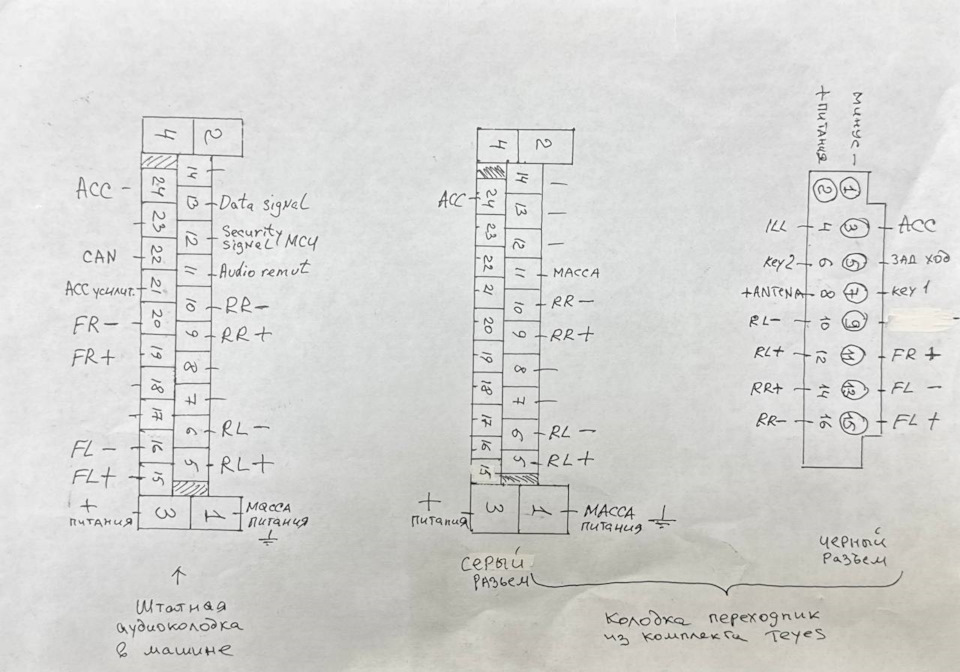 4 2
14
24
ACC -
13 Data signal
23
12 Security
signal / MCU
CAN 22
11 Audio remut
ACC усилит. 21
10 RR-
FR- 20
9 RR+
FR+ 19
8
18
7
17
6 RL-
FL- 16
5 RL+
FL+ 15
+
питания 3 1 Масса
питания
↑
Штатная
аудиоколодка
в машине
4 2
14
ACC 24
13
23
12
22
11 МАССА
21
10 RR-
20
9 RR+
19
8
18
7
17
6 RL-
16
5 RL+
15
+
питания 3 1 МАССА
питания
СЕРЫЙ
РАЗЬЕМ
+ ПИТАНИЯ
МИНУС -
2 1
ILL 4 3 ACC
Key2 6 5 ЗАД ХОД
+ANTENA 8 7 Key 1
RL- 10 9
RL+ 12 11 FR +
RR+ 14 13 FL -
RR- 16 15 FL +
ЧЕРНЫЙ
РАЗЬЕМ
Колодка переходник
из комплекта Teyes